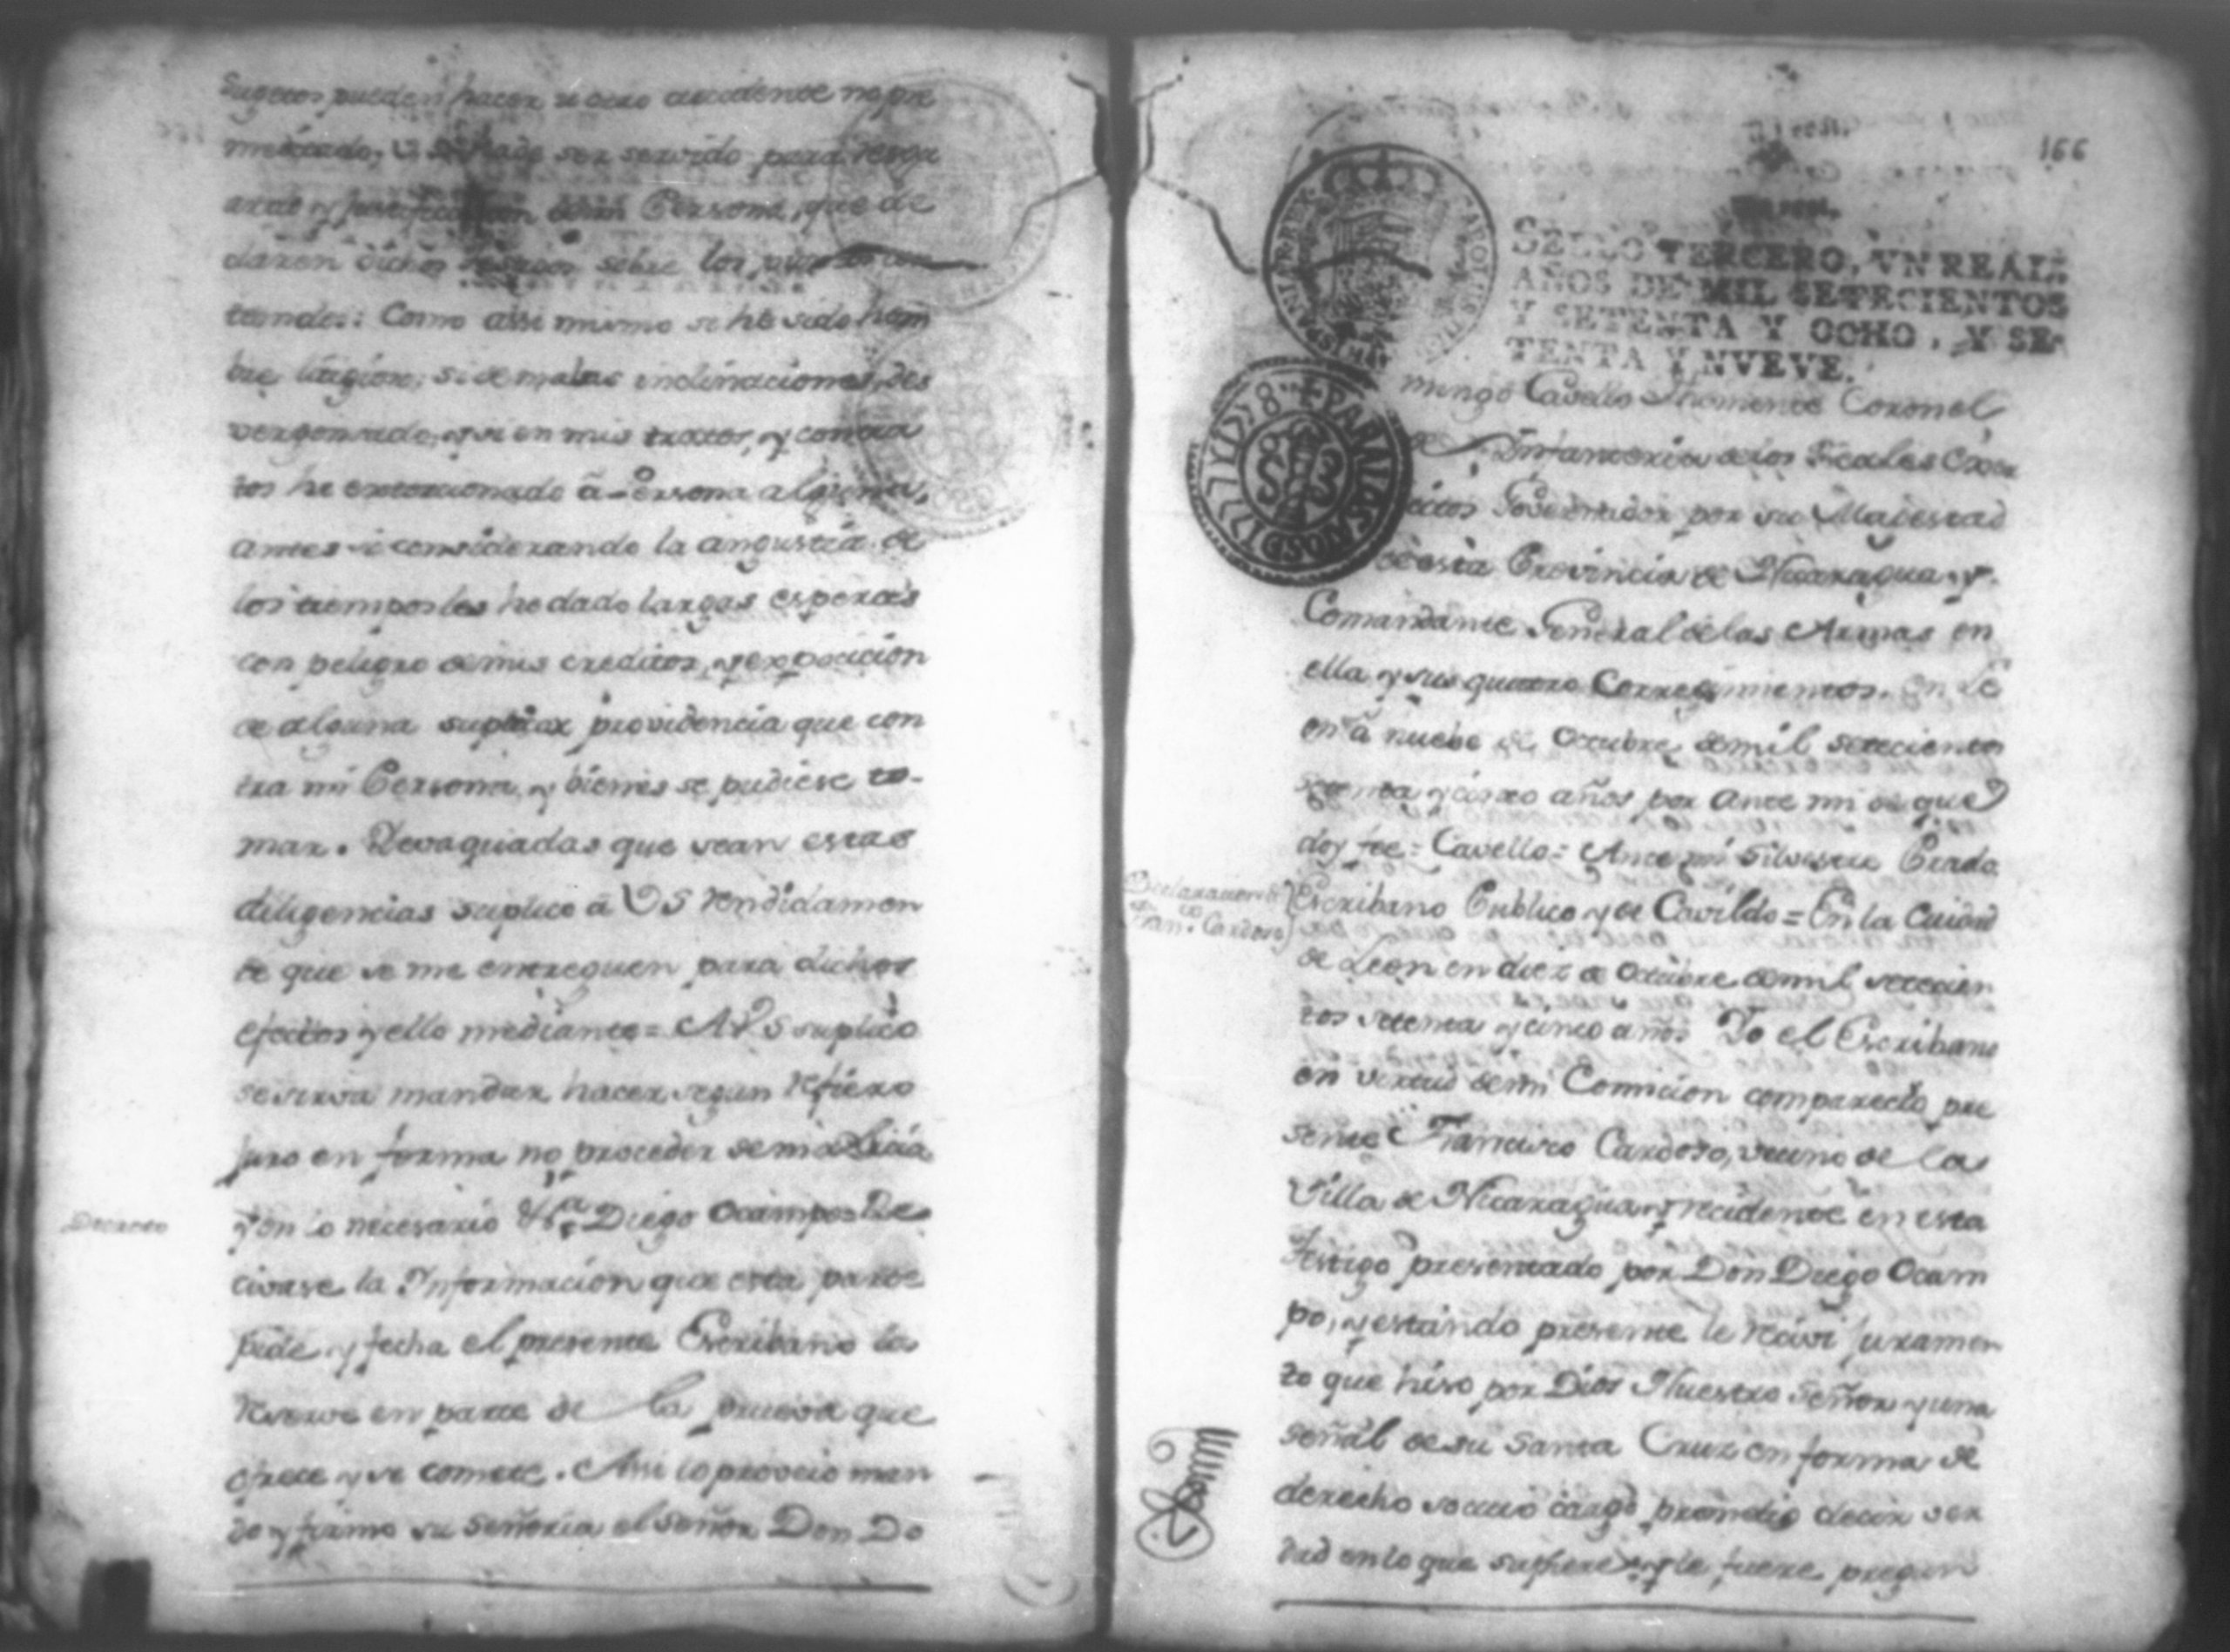 Sugetos pueden hacer u otro accidente no pre
meditado, VS se hade ser servido para resgu
ardo y justificacion demi Persona, que de
claren dichos sobre los puntos con
tenidos: Como assi mismo si he sido hom
bre litigioso, si de malas inclinaciones, des
vergonzado, y si en mis tratos, y contra
tos he extorcionado â Persona alguna,
antes si considerando la angustia de
los tiempos les he dado largas esperas
con peligro de mis creditos, y expocicion
de alguna supeior providencia que con
tra mi Persona, y bienes se pudiese to-
mar. Devaquiadas que sean estas
diligencias suplico â VS rendidamen
te que se me entreguen para dichos
efectos y ello mediante = A VS suplico
se sirva mandar hacer segun refiero
juro en forma no proceder de malicia
y en lo necesario &ª Diego Ocampo = Re
Decreto
civase la Informacion que esta parte
pide y fecha el presente Escribano la
reserve en parte de la prueva que
ofrece y se comete. Assi lo proveio man
do y firmo su señoria el señor Don Do
166
SELLO TERCERO, VN REAL:
AÑOS DE MIL SETECIENTOS
Y SETENTA Y OCHO, Y SE-
TENTA Y NVEVE.
mingo Cavello Theniente Coronel
de Infanteria de los Reales Exer
citos Governador por su Magestad
de esta Provincia de Nicaragua y
Comandante General de las Armas en
ella y sus quatro Corregimientos. En Le
on â nuebe de Octubre de mil setecientos
setenta y cinco años por Ante mi de que
doy fee = Cavello = Ante mi Silvestre Prado
Declaracion de
Franco. Cardoso
Escribano Publico y de Cavildo = En la Ciudad
de Leon en diez de Octubre de mil setecien
tos setenta y cinco años Yo el Escribano
en virtud de mi Comicion comparecio pre
sente Francisco Cardoso, vecino de la
Villa de Nicaragua y recidente en esta
testigo presentado por Don Diego Ocam
po, y estando presente le recivi juramen
to que hiso por Dios Nuestro Señor y una
señal de su Santa Cruz en forma de
derecho so cuio cargo prometio decir ver
dad en lo que supiere y le fuere pregun